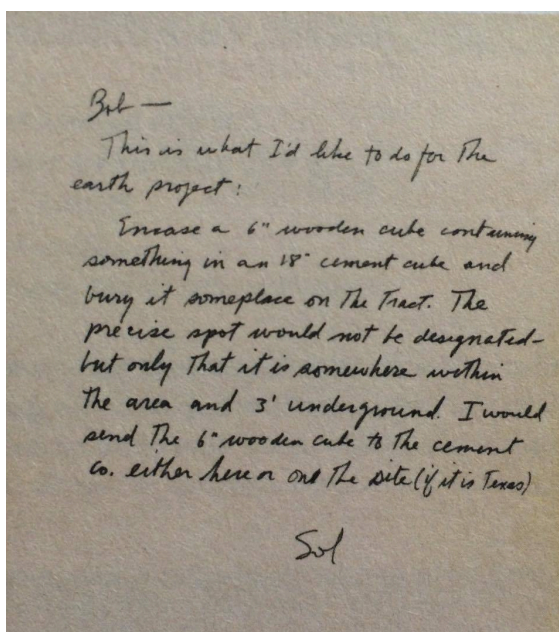 Bob —
This is what I'd like to do for the
earth project:
Encase a 6" wooden cube containing
something in an 18" cement cube and
bury it someplace on the Tract. The
precise spot would not be designated—
but only that it is somewhere within
the area and 3' underground. I would
send the 6" wooden cube to the cement
co. either here or one the site (if it is Texas)
Sol